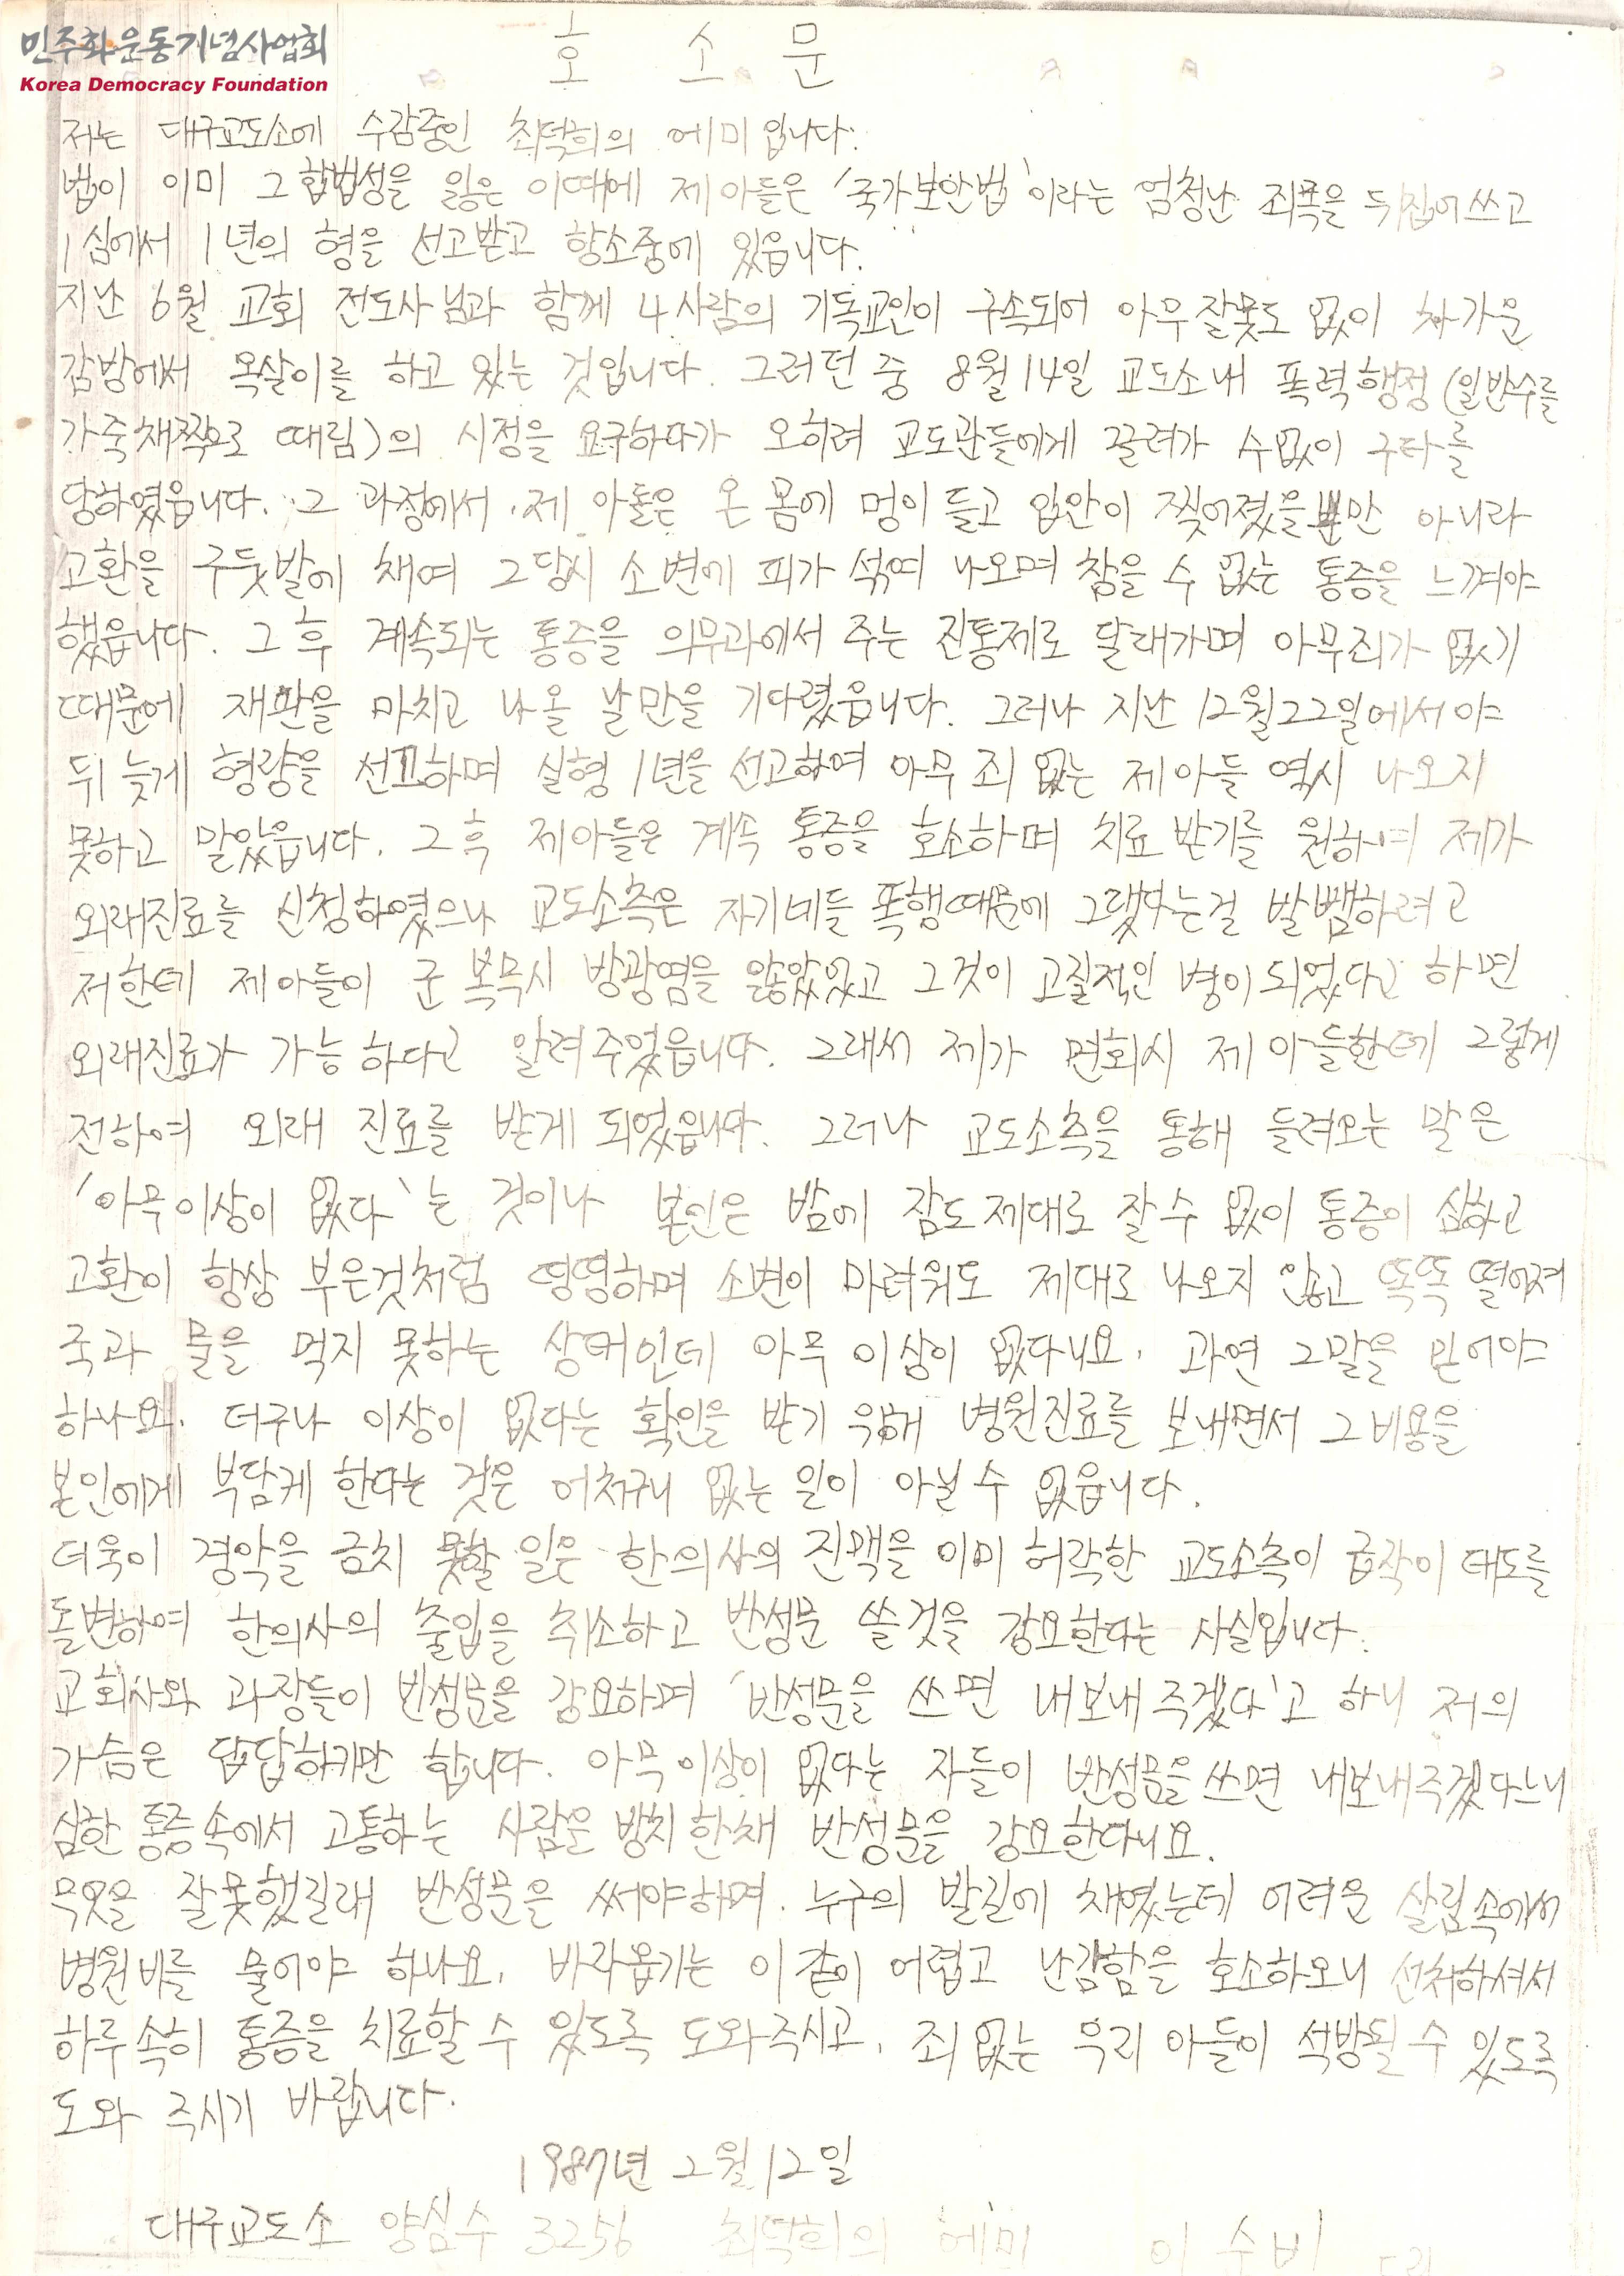 민주화운동기념사업회
Korea Democracy Foundation
호 소 문
저는 대구교도소에 수감중인 최덕희의 에미입니다.
법이 이미 그 합법성을 잃은 이때에 제 아들은 '국가보안법'이라는 엄청난 죄목을 뒤집어 쓰고
1심에서 1년의 형을 선고받고 항소중에 있읍니다.
지난 6월 교회 전도사님과 함께 4사람의 기독교인이 구속되어 아무 잘못도 없이 차가운
감방에서 옥살이를 하고 있는 것입니다. 그러던 중 8월 14일 교도소내 폭력행정 (일반수를
가죽채찍으로 때림)의 시정을 요구하다가 오히려 교도관들에게 끌려가 수없이 구타를
당하였읍니다. 그 과정에서 제 아들은 온 몸에 멍이 들고 입안이 찢어졌을 뿐만 아니라
고환을 구둣발에 채여 그당시 소변에 피가 섞여 나오며 참을 수 없는 통증을 느껴야
했읍니다. 그 후 계속되는 통증을 의무과에서 주는 진통제로 달래가며 아무죄가 없기
때문에 재판을 마치고 나올 날만을 기다렸읍니다. 그러나 지난 12월 22일에서야
뒤늦게 형량을 선고하며 실형 1년을 선고하여 아무 죄 없는 제 아들 역시 나오지
못하고 말았읍니다. 그 후 제아들은 계속 통증을 호소하며 치료 받기를 원하여 제가
외래진료를 신청하였으나 교도소측은 자기네들 폭행때문에 그랬다는걸 발뺌하려고
저한테 제아들이 군 복무시 방광염을 앓았었고 그것이 고질적인 병이 되었다고 하면
외래진료가 가능하다고 알려주었읍니다. 그래서 제가 면회시 제 아들한테 그렇게
전하여 외래 진료를 받게 되었읍니다. 그러나 교도소측을 통해 들려오는 말은
'아무이상이 없다'는 것이나 본인은 밤에 잠도 제대로 잘수 없이 통증이 심하고
고환이 항상 부은것처럼 띵띵하며 소변이 마려워도 제대로 나오지 않고 똑똑 떨어져
국과 물을 먹지 못하는 상태인데 아무 이상이 없다니요. 과연 그말을 믿어야
하나요. 더구나 이상이 없다는 확인을 받기 위해 병원진료를 보내면서 그 비용을
본인에게 부담케 한다는 것은 어처구니 없는 일이 아닐 수 없읍니다.
더욱이 경악을 금치 못할 일은 한의사의 진맥을 이미 허락한 교도소측이 급작이 태도를
돌변하여 한의사의 출입을 취소하고 반성문 쓸것을 강요한다는 사실입니다.
교회사와 과장들이 반성문을 강요하며 '반성문을 쓰면 내보내 주겠다'고 하니 저의
가슴은 답답하기만 합니다. 아무 이상이 없다는 자들이 반성문을 쓰면 내보내주겠다느니
심한 통증속에서 고통하는 사람을 방치한채 반성문을 강요한다니요.
무엇을 잘못했길래 반성문을 써야하며. 누구의 발길에 채였는데 어려운 살림속에서
병원비를 물어야 하나요. 바라옵기는 이같이 어렵고 난감함을 호소하오니 선처하셔서
하루 속히 통증을 치료할 수 있도록 도와주시고, 죄없는 우리 아들이 석방될 수 있도록
도와 주시기 바랍니다.
1987년 2월 12일
대구교도소 양심수 3256 최덕희의 에미 이 수비